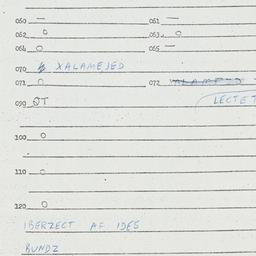 060 — 061 —
062 0 063. 0
064 0 065 —
070 XALAMEJED
071 0 072
090 QT LECTET
100 0
110 0
120 0
IBERZECT AF IDES
BUNDZ